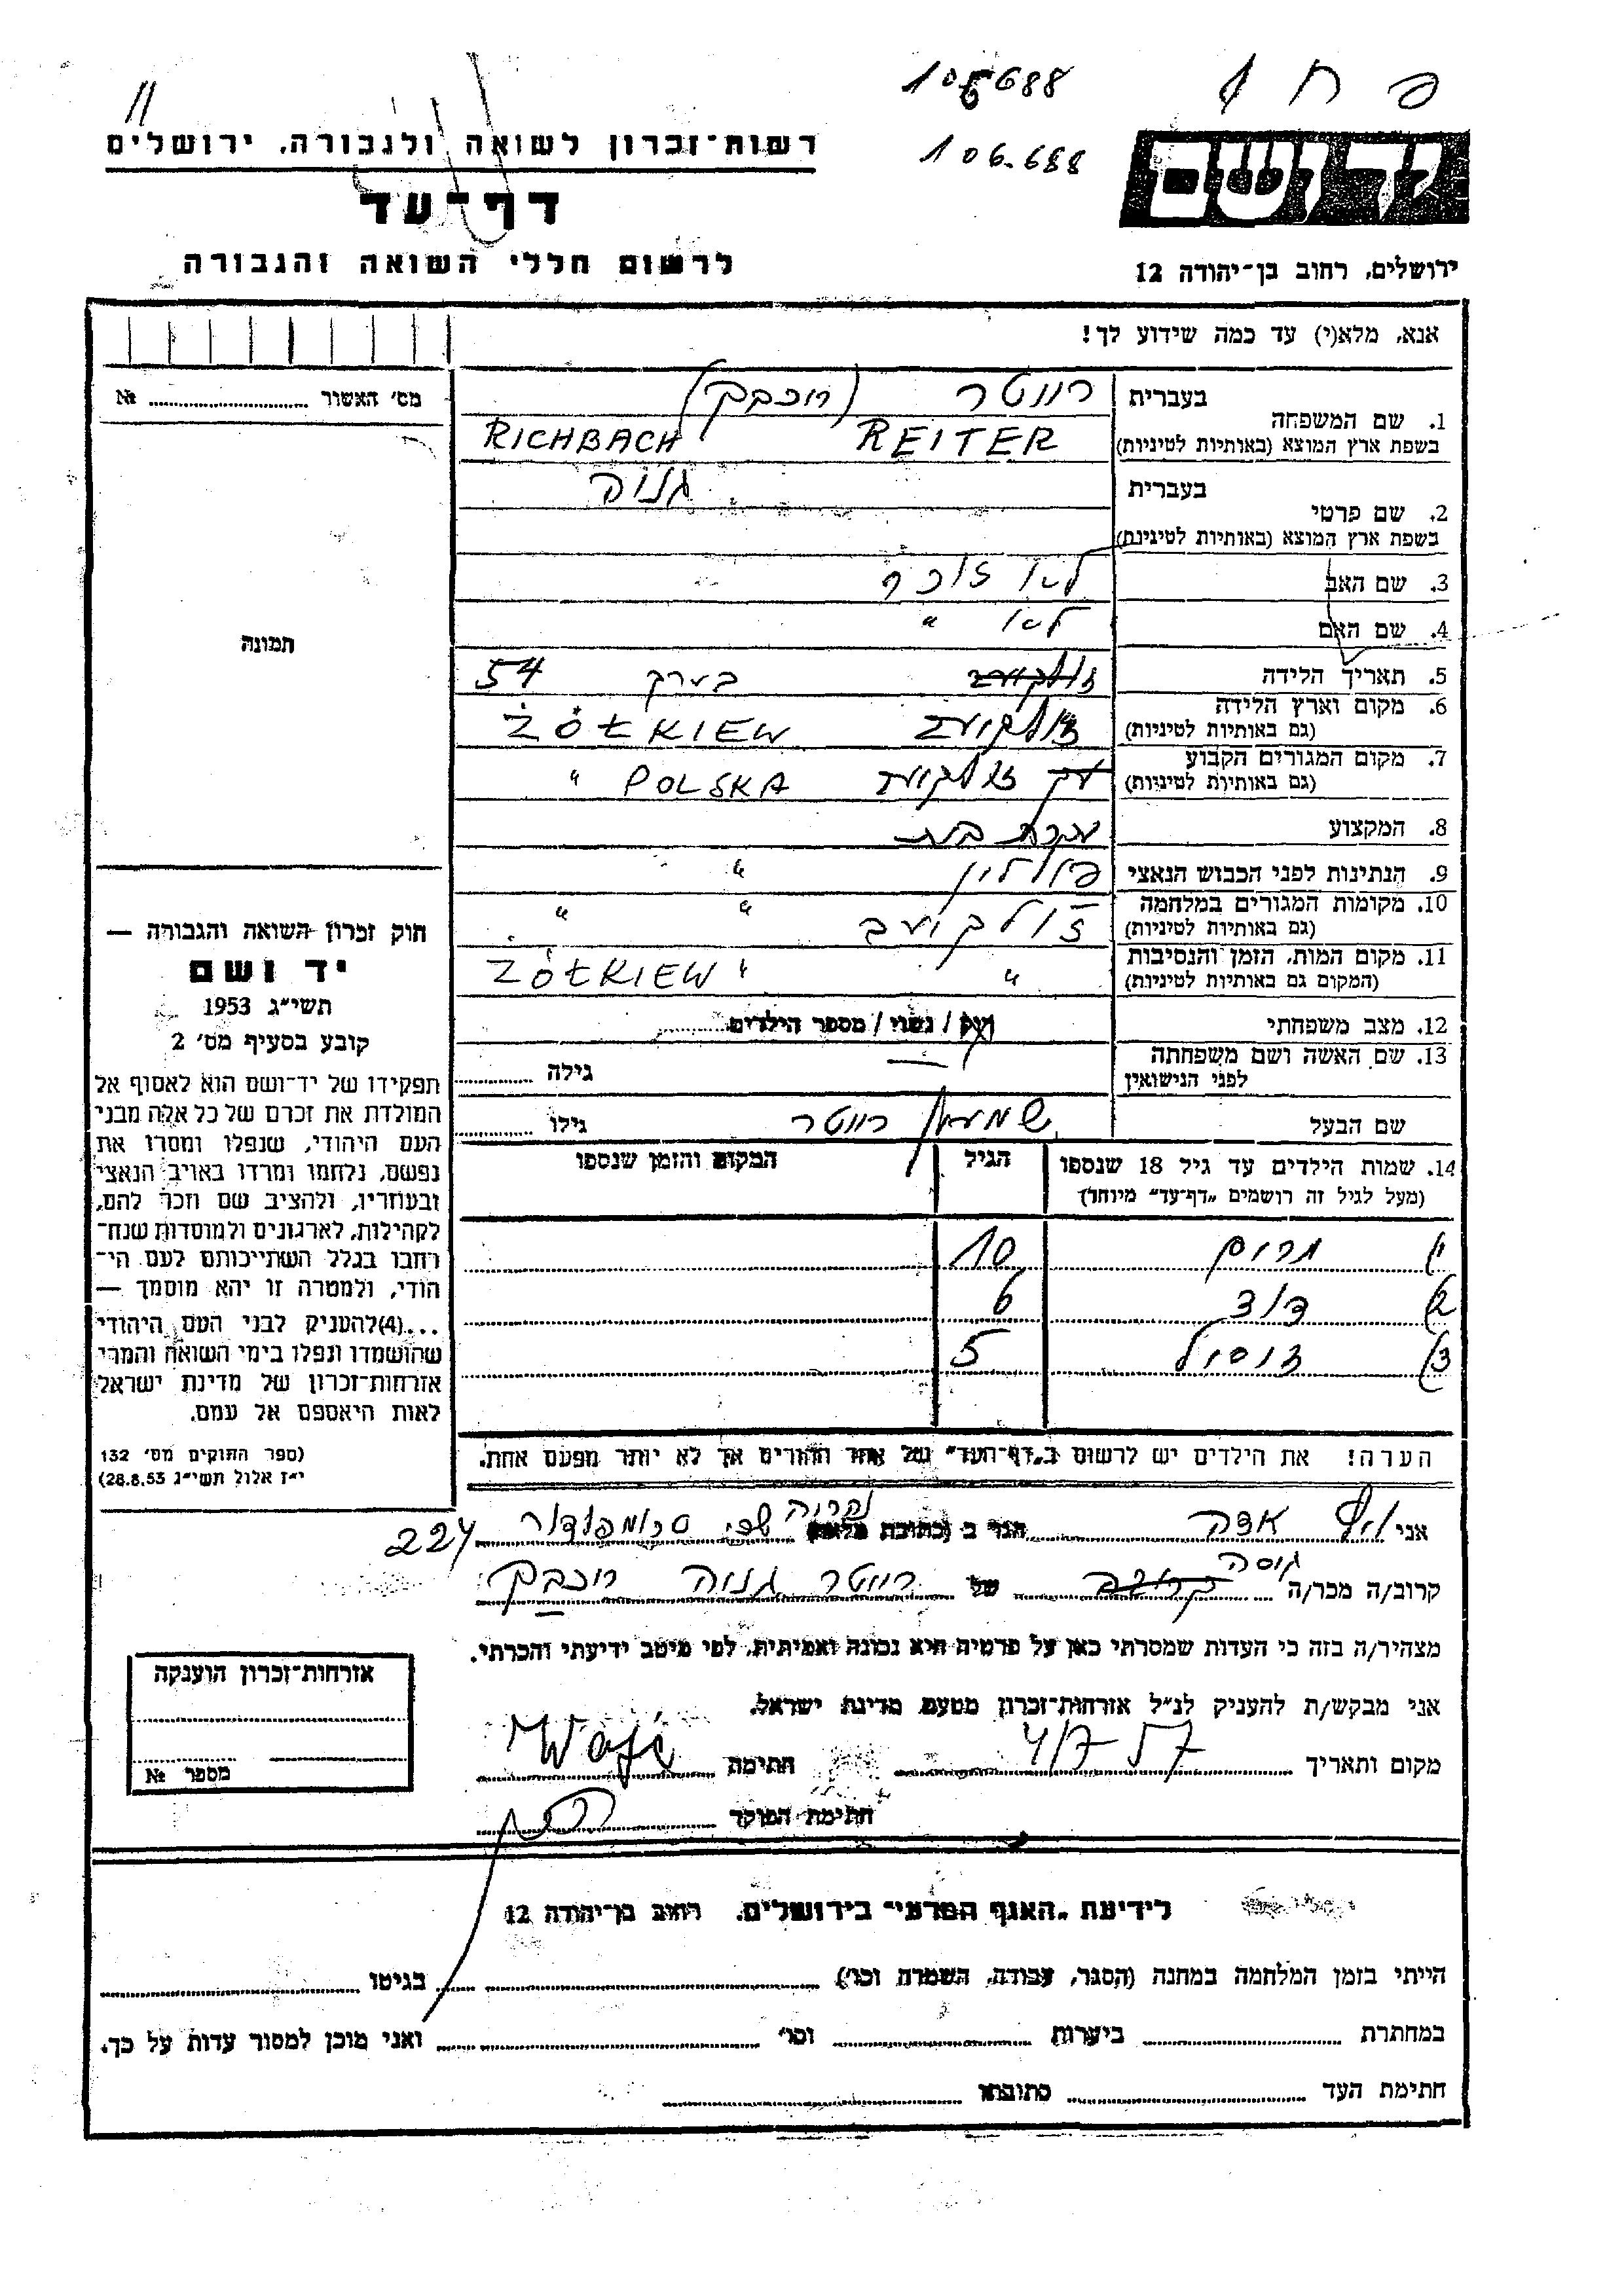 106688
106.688
יד ושם
רשות־זכרון לשואה ולגבורה, ירושלים
דף־עד
לרשום חללי השואה והגבורה
ירושלים, רחוב בן־יהודה 12
אנא, מלא(י) עד כמה שידוע לך!
מס' האשור № 
1. שם המשפחה
בעברית רייטר (רוכבך)
בשפת ארץ המוצא (באותיות לטיניות) REITER RICHBACH
2. שם פרטי
בעברית גניה
בשפת ארץ המוצא (באותיות לטיניות)
3. שם האב לא זוכר
4. שם האם לא "
5. תאריך הלידה בערך 54
6. מקום וארץ הלידה
(גם באותיות לטיניות) ŻÓŁKIEW
7. מקום המגורים הקבוע
(גם באותיות לטיניות) POLSKA "
8. המקצוע עקרת בית
9. הנתינות לפני הכבוש הנאצי פולין "
10. מקומות המגורים במלחמה
(גם באותיות לטיניות) " "
11. מקום המות, הזמן והנסיבות
(המקום גם באותיות לטיניות) " ŻÓŁKIEW "
12. מצב משפחתי רווק / נשוי / מספר הילדים
13. שם האשה ושם משפחתה
לפני הנישואין גילה
שם הבעל רייטר גילו
14. שמות הילדים עד גיל 18 שנספו
(מעל לגיל זה רושמים „דף־עד" מיוחד)
הגיל
המקום והזמן שנספו
1) 10
2) דוד 6
3) 5
הערה! את הילדים יש לרשום ב„דף־העד" של אחד ההורים אך לא יותר מפעם אחת.
תמונה
חוק זכרון השואה והגבורה —
יד ושם
תשי"ג 1953
קובע בסעיף מס' 2
תפקידו של יד־ושם הוא לאסוף אל
המולדת את זכרם של כל אלה מבני
העם היהודי, שנפלו ומסרו את
נפשם, נלחמו ומרדו באויב הנאצי
ובעוזריו, ולהציב שם וזכר להם,
לקהילות, לארגונים ולמוסדות שנח־
רבו בגלל השתייכותם לעם הי־
הודי, ולמטרה זו יהא מוסמך —
...(4)להעניק לבני העם היהודי
שהושמדו ונפלו בימי השואה והמרי
אזרחות־זכרון של מדינת ישראל
לאות היאספם אל עמם.
(ספר החוקים מס' 132
י"ז אלול תשי"ג 28.8.53)
אני אדה הגר ב (כתובת מלאה) 224
קרוב/ה מכר/ה גיסה של רייטר גניה רוכבך
מצהיר/ה בזה כי העדות שמסרתי כאן על פרטיה היא נכונה ואמיתית, לפי מיטב ידיעתי והכרתי.
אני מבקש/ת להעניק לנ"ל אזרחות־זכרון מטעם מדינת ישראל.
מקום ותאריך 4/7 57 חתימה
חתימת הפוקד
אזרחות־זכרון הוענקה
מספר №
לידיעת „האגף המדעי" בירושלים, רחוב בן־יהודה 12
הייתי בזמן המלחמה במחנה (הסגר, עבודה, השמדה וכו') בגיטו
במחתרת ביערות וכו' ואני מוכן למסור עדות על כך.
חתימת העד כתובתו